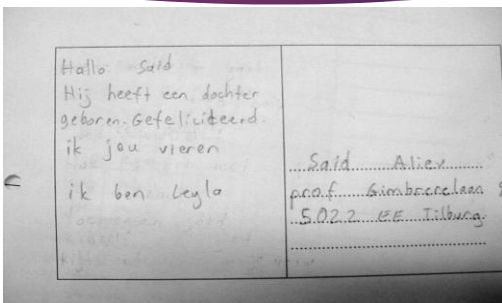 Hallo Said
Hij heeft een dochter
geboren. Gefeliciteerd.
ik jou vieren
ik ben Leyla
Said Aliev
prof Gimbrerelaan
5022 EE Tilburg.